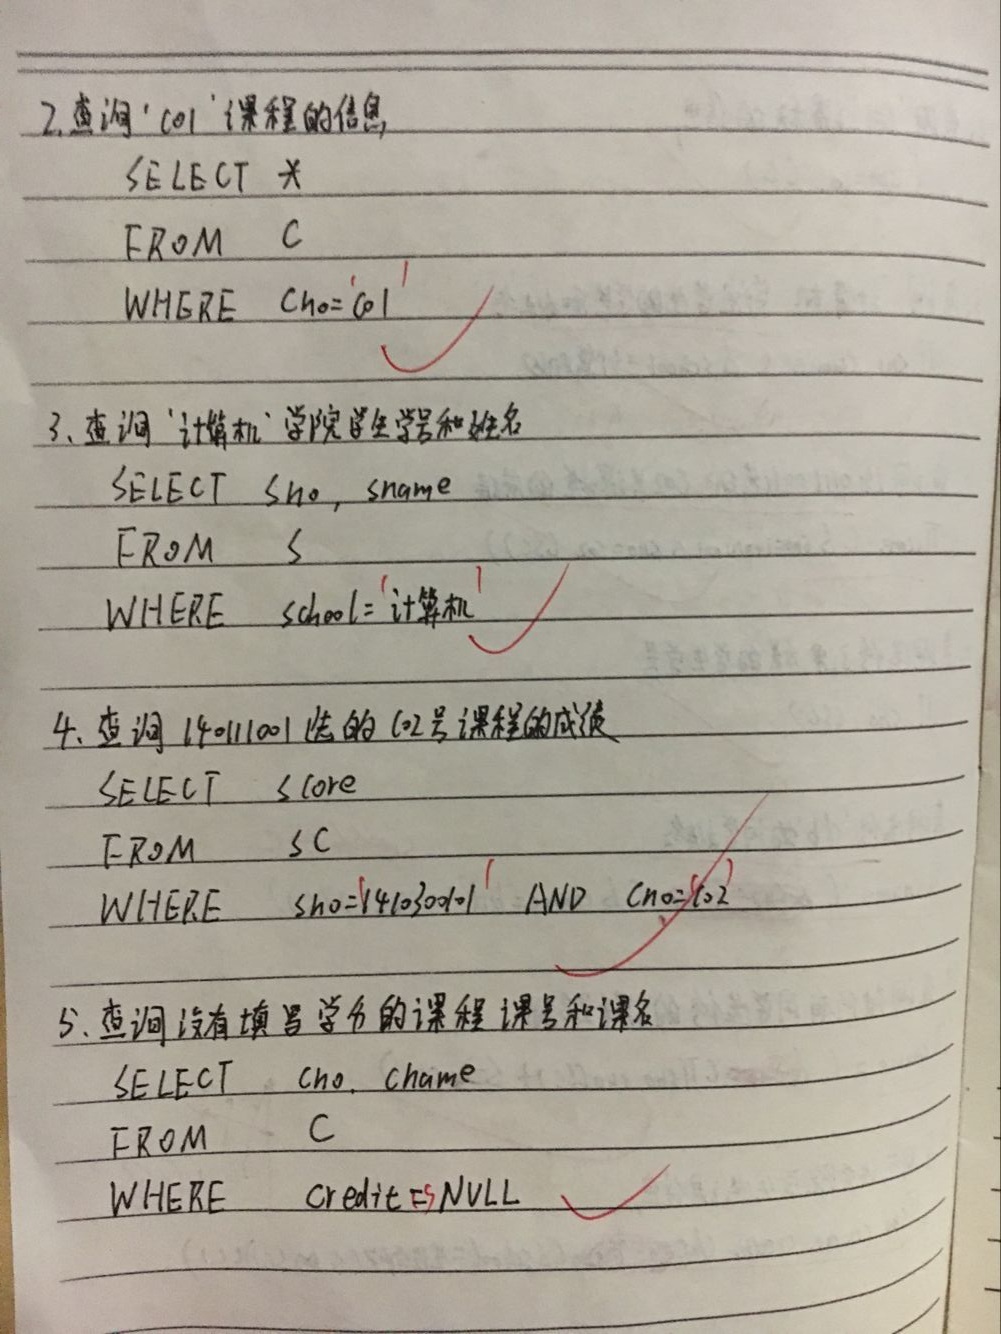 2.查询'C01'课程的信息
SELECT *
FROM C
WHERE Cno='C01'
3、查询'计算机'学院学生学号和姓名
SELECT Sno, sname
FROM S
WHERE school='计算机'
4、查询140111001选的C02号课程的成绩
SELECT score
FROM SC
WHERE sno='141030010' AND Cno='C02'
5、查询没有填写学分的课程课号和课名
SELECT cno, cname
FROM C
WHERE credit IS NULL